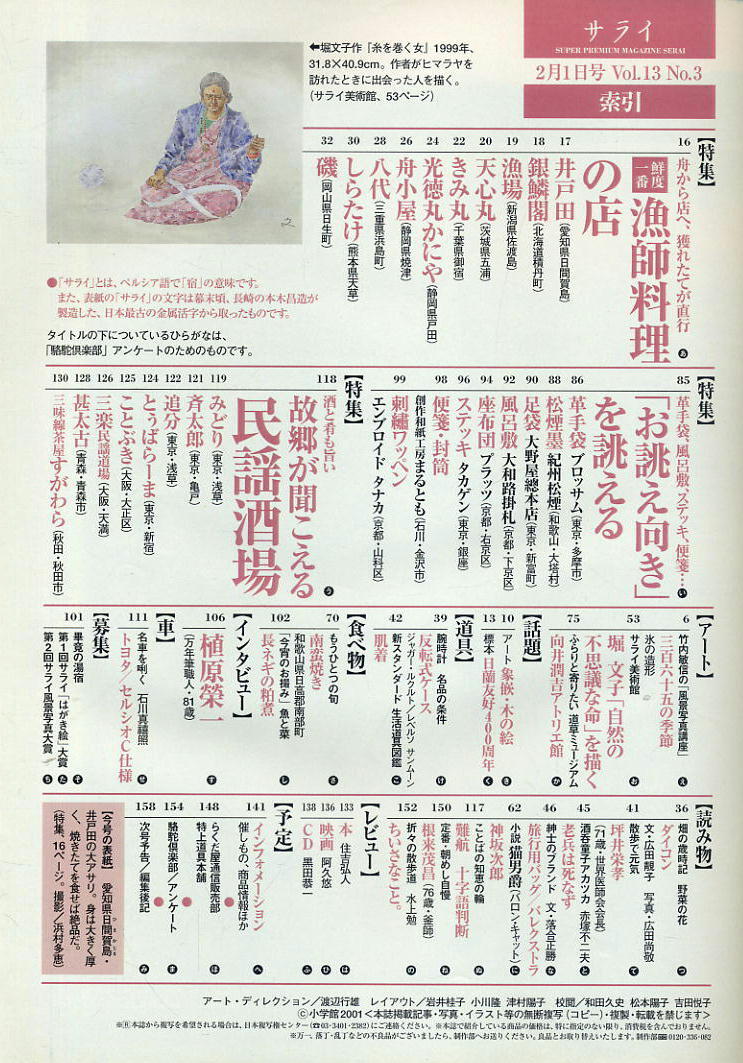 サライ
SUPER PREMIUM MAGAZINE SERAI
2月1日号 Vol.13 No.3
索引
←堀文子作『糸を巻く女』1999年、
31.8×40.9cm。作者がヒマラヤを
訪れたときに出会った人を描く。
（サライ美術館、53ページ）
●「サライ」とは、ペルシア語で「宿」の意味です。
また、表紙の「サライ」の文字は幕末頃、長崎の本木昌造が
製造した、日本最古の金属活字から取ったものです。
タイトルの下についているひらがなは、
「駱駝倶楽部」アンケートのためのものです。
【特集】
16 舟から店へ、獲れたてが直行
鮮度一番 漁師料理 あ
の店
17 井戸田（愛知県日間賀島）
18 銀鱗閣（北海道積丹町）
19 漁場（新潟県佐渡島）
20 天心丸（茨城県五浦）
22 きみ丸（千葉県御宿）
24 光徳丸かにや（静岡県戸田）
26 舟小屋（静岡県焼津）
28 八代（三重県浜島町）
30 しらたけ（熊本県天草）
32 磯（岡山県日生町）
【特集】
85 革手袋、風呂敷、ステッキ、便箋… い
「お誂え向き」
を誂える
86 革手袋 ブロッサム（東京・多摩市）
88 松煙墨 紀州松煙（和歌山・大塔村）
90 足袋 大野屋總本店（東京・新富町）
92 風呂敷 大和路掛札（京都・下京区）
94 座布団 プラッツ（京都・右京区）
96 ステッキ タカゲン（東京・銀座）
98 便箋・封筒
創作和紙工房まるとも（石川・金沢市）
99 刺繡ワッペン
エンブロイド タナカ（京都・山科区）
【特集】
118 酒と肴も旨い
故郷が聞こえる う
民謡酒場
119 みどり（東京・浅草）
121 斉太郎（東京・亀戸）
122 追分（東京・浅草）
124 とぅばらーま（東京・新宿）
125 ことぶき（大阪・大正区）
126 三楽民謡道場（大阪・天満）
128 甚太古（青森・青森市）
130 三味線茶屋すがわら（秋田・秋田市）
【アート】
6 竹内敏信の「風景写真講座」 え
三百六十五の季節
氷の造形
53 サライ美術館 お
堀 文子「自然の
不思議な命」を描く
75 ふらりと寄りたい 道草ミュージアム か
向井潤吉アトリエ館
【話題】
10 アート 象嵌・木の絵 き
13 標本 日蘭友好400周年 く
【道具】
39 腕時計 名品の条件 け
反転式ケース
ジャガー・ルクルト／レベルソ サンムーン
42 新スタンダード 生活道具図鑑 こ
肌着
【食べ物】
70 もうひとつの旬 さ
南蛮焼き
和歌山県日高郡南部町
102 「今宵のお摘み」魚と菜 し
長ネギの粕煮
【インタビュー】
106 植原榮一 す
（万年筆職人・81歳）
【車】
111 名車を聞く 石川真禧照 せ
トヨタ／セルシオC仕様
【募集】
101 畢竟の湯宿 そ
第1回サライ「はがき絵」大賞 た
第2回サライ風景写真大賞 ち
【読み物】
36 畑の歳時記 野菜の花 つ
ダイコン
文・広田靚子 写真・広田尚敬
41 散歩で元気 て
坪井栄孝
（71歳・世界医師会会長）
45 酒呑童子アカツカ 赤塚不二夫 と
老兵は死なず
46 紳士のブランド 文・落合正勝 な
旅行用バッグ／バレクストラ
62 小説 猫男爵（バロン・キャット） に
神坂次郎
117 ことばの知恵の輪 ぬ
難航 十字語判断
150 定番・朝めし自慢 ね
根来茂昌（76歳・釜師）
152 折々の散歩道 水上勉 の
ちいさなこと。
【レビュー】
133 本 住吉弘人 は
136 映画 阿久悠 ひ
138 CD 黒田恭一 ふ
【予定】
141 インフォメーション へ
催しもの、商品情報ほか
148 らくだ屋通信販売部 ほ
特上道具本舗
154 駱駝倶楽部／アンケート ま
158 次号予告／編集後記 み
【今号の表紙】 愛知県日間賀島・
井戸田の大アサリ。身は大きく厚
く、焼きたてを食せば絶品だ。
（特集、16ページ。撮影／浜村多恵）
アート・ディレクション／渡辺行雄 レイアウト／岩井桂子 小川隆 津村陽子 校閲／和田久史 松本陽子 吉田悦子
©小学館2001＜本誌掲載記事・写真・イラスト等の無断複写（コピー）・複製・転載を禁じます＞
※Ⓡ本誌から複写を希望される場合は、日本複写権センター（☎03-3401-2382）にご連絡ください。※本誌で紹介している商品の価格は、特に指定のない限り、消費税を含んでおりません。
※万一、落丁・乱丁などの不良品がございましたら、制作部へお送りください。良品とお取り替えいたします。制作部☎0120-336-082